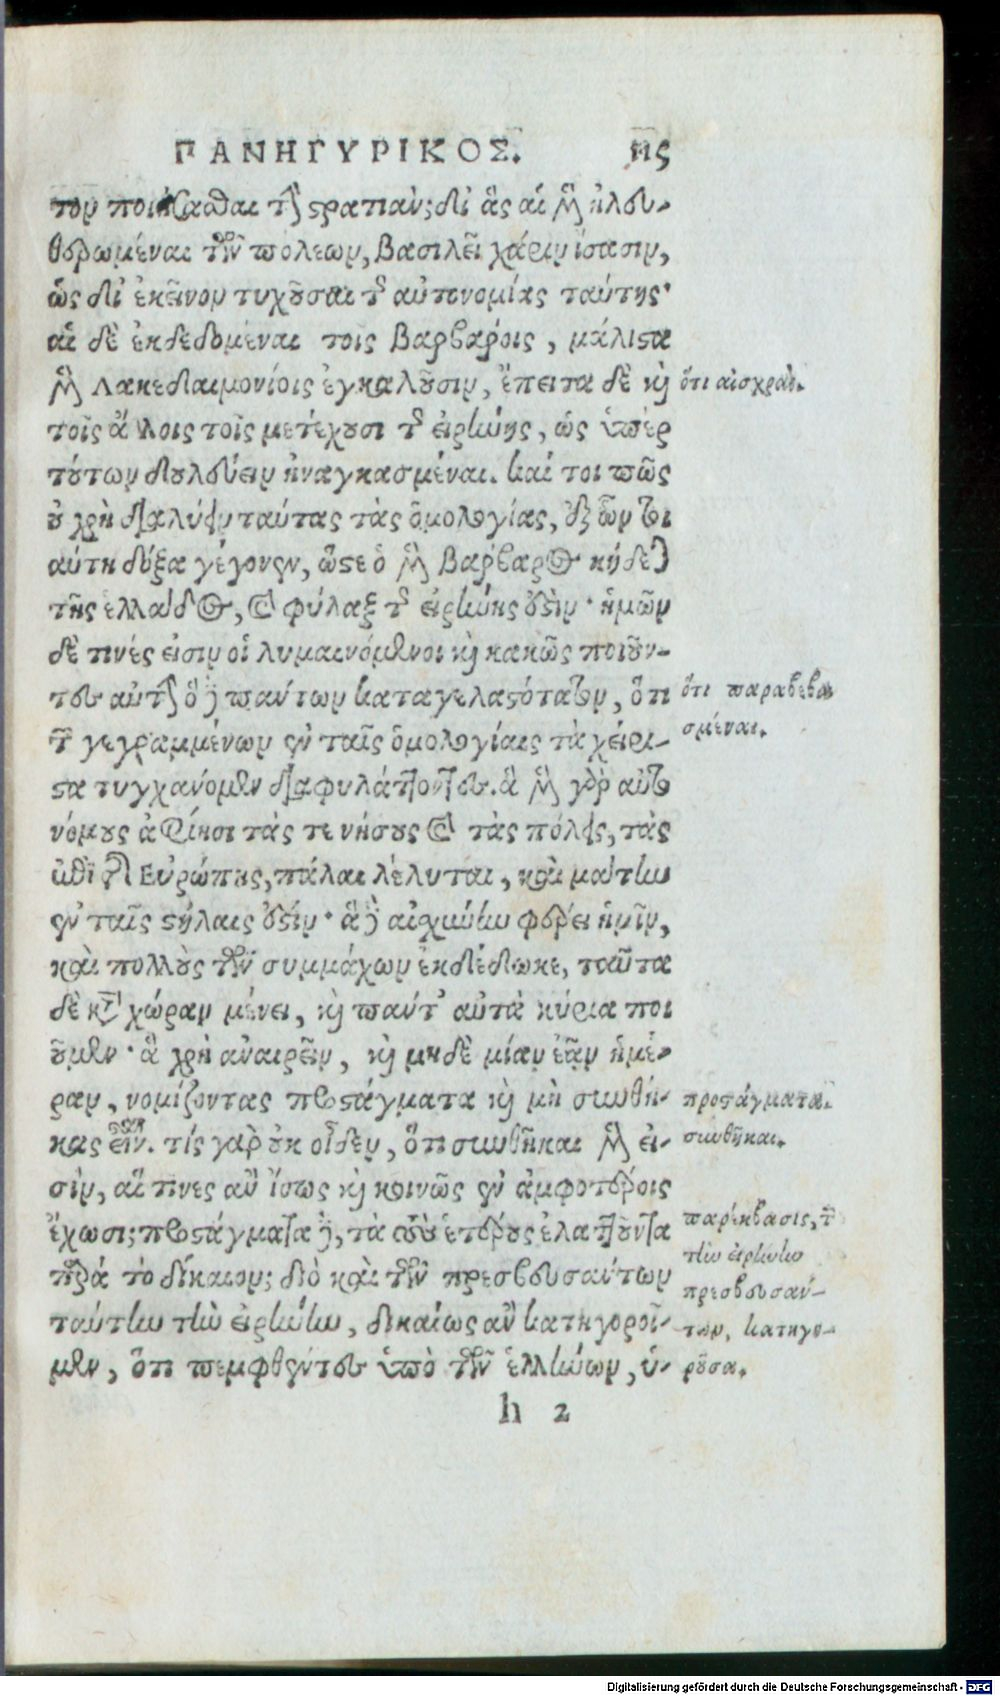 ΠΑΝΗΓΥΡΙΚΟΣ. νς
τον ποιήσασθαι τὴν στρατιὰν; δι' ἃς αἱ μὲν ἠλευ-
θερωμέναι τῶν πόλεων, βασιλεῖ χάριν ἴσασιν,
ὡς δι' ἐκεῖνον τυχοῦσαι τῆς αὐτονομίας ταύτης·
αἱ δὲ ἐκδεδομέναι τοῖς βαρβάροις, μάλιστα
μὲν Λακεδαιμονίοις ἐγκαλοῦσιν, ἔπειτα δὲ καὶ
ὅτι αἰσχραί.
τοῖς ἄλλοις τοῖς μετέχουσι τῆς εἰρήνης, ὡς ὑπὲρ
τούτων δουλεύειν ἠναγκασμέναι. καί τοι πῶς
οὐ χρὴ διαλύειν ταύτας τὰς ὁμολογίας, ἐξ ὧν τοι
αύτη δόξα γέγονεν, ὥστε ὁ μὲν βάρβαρος κήδεται
τῆς ἑλλάδος, καὶ φύλαξ τῆς εἰρήνης ἐστὶν· ἡμῶν
δὲ τινές εἰσιν οἱ λυμαινόμενοι καὶ κακῶς ποιοῦν-
τες αὐτήν· ὃ δὲ πάντων καταγελαστότατον, ὅτι
ὅτι παραβεβα
σμέναι.
τῶν γεγραμμένων ἐν ταῖς ὁμολογίαις τὰ χείρι-
στα τυγχάνομεν διαφυλάττοντες. ἃ μὲν γὰρ αὐτο
νόμους ἀφίησι τάς τε νήσους καὶ τὰς πόλεις, τὰς
ἐπὶ τῆς Εὐρώπης, πάλαι λέλυται, καὶ μάτην
ἐν ταῖς στήλαις ἐστίν· ἃ δὲ αἰσχύνην φέρει ἡμῖν,
καὶ πολλοὺς τῶν συμμάχων ἐκδέδωκε, ταῦτα
δὲ κατὰ χώραν μένει, καὶ πάντ' αὐτὰ κύρια ποι
οῦμεν· ἃ χρὴ ἀναιρεῖν, καὶ μηδὲ μίαν ἐᾶν ἡμέ-
ραν, νομίζοντας προστάγματα καὶ μὴ συνθή-
προστάγματα.
κας εἶναι. τίς γὰρ οὐκ οἶδεν, ὅτι συνθῆκαι μὲν εἰ-
συνθῆκαι.
σὶν, αἵ τινες ἂν ἴσως καὶ κοινῶς ἐν ἀμφοτέροις
ἔχωσι; προστάγματα δὲ, τὰ τοὺς ἑτέρους ἐλαττοῦντα
παρὰ τὸ δίκαιον; διὸ καὶ τῶν πρεσβευσάντων
ταύτην τὴν εἰρήνην, δικαίως ἂν κατηγοροῖ-
μεν, ὅτι πεμφθέντες ὑπὸ τῶν ἑλλήνων, ὑ-
παρέκβασις,
τὴν εἰρήνην
πρεσβευσάν-
των, κατηγο-
ροῦσα.
h 2
Digitalisierung gefördert durch die Deutsche Forschungsgemeinschaft - DFG